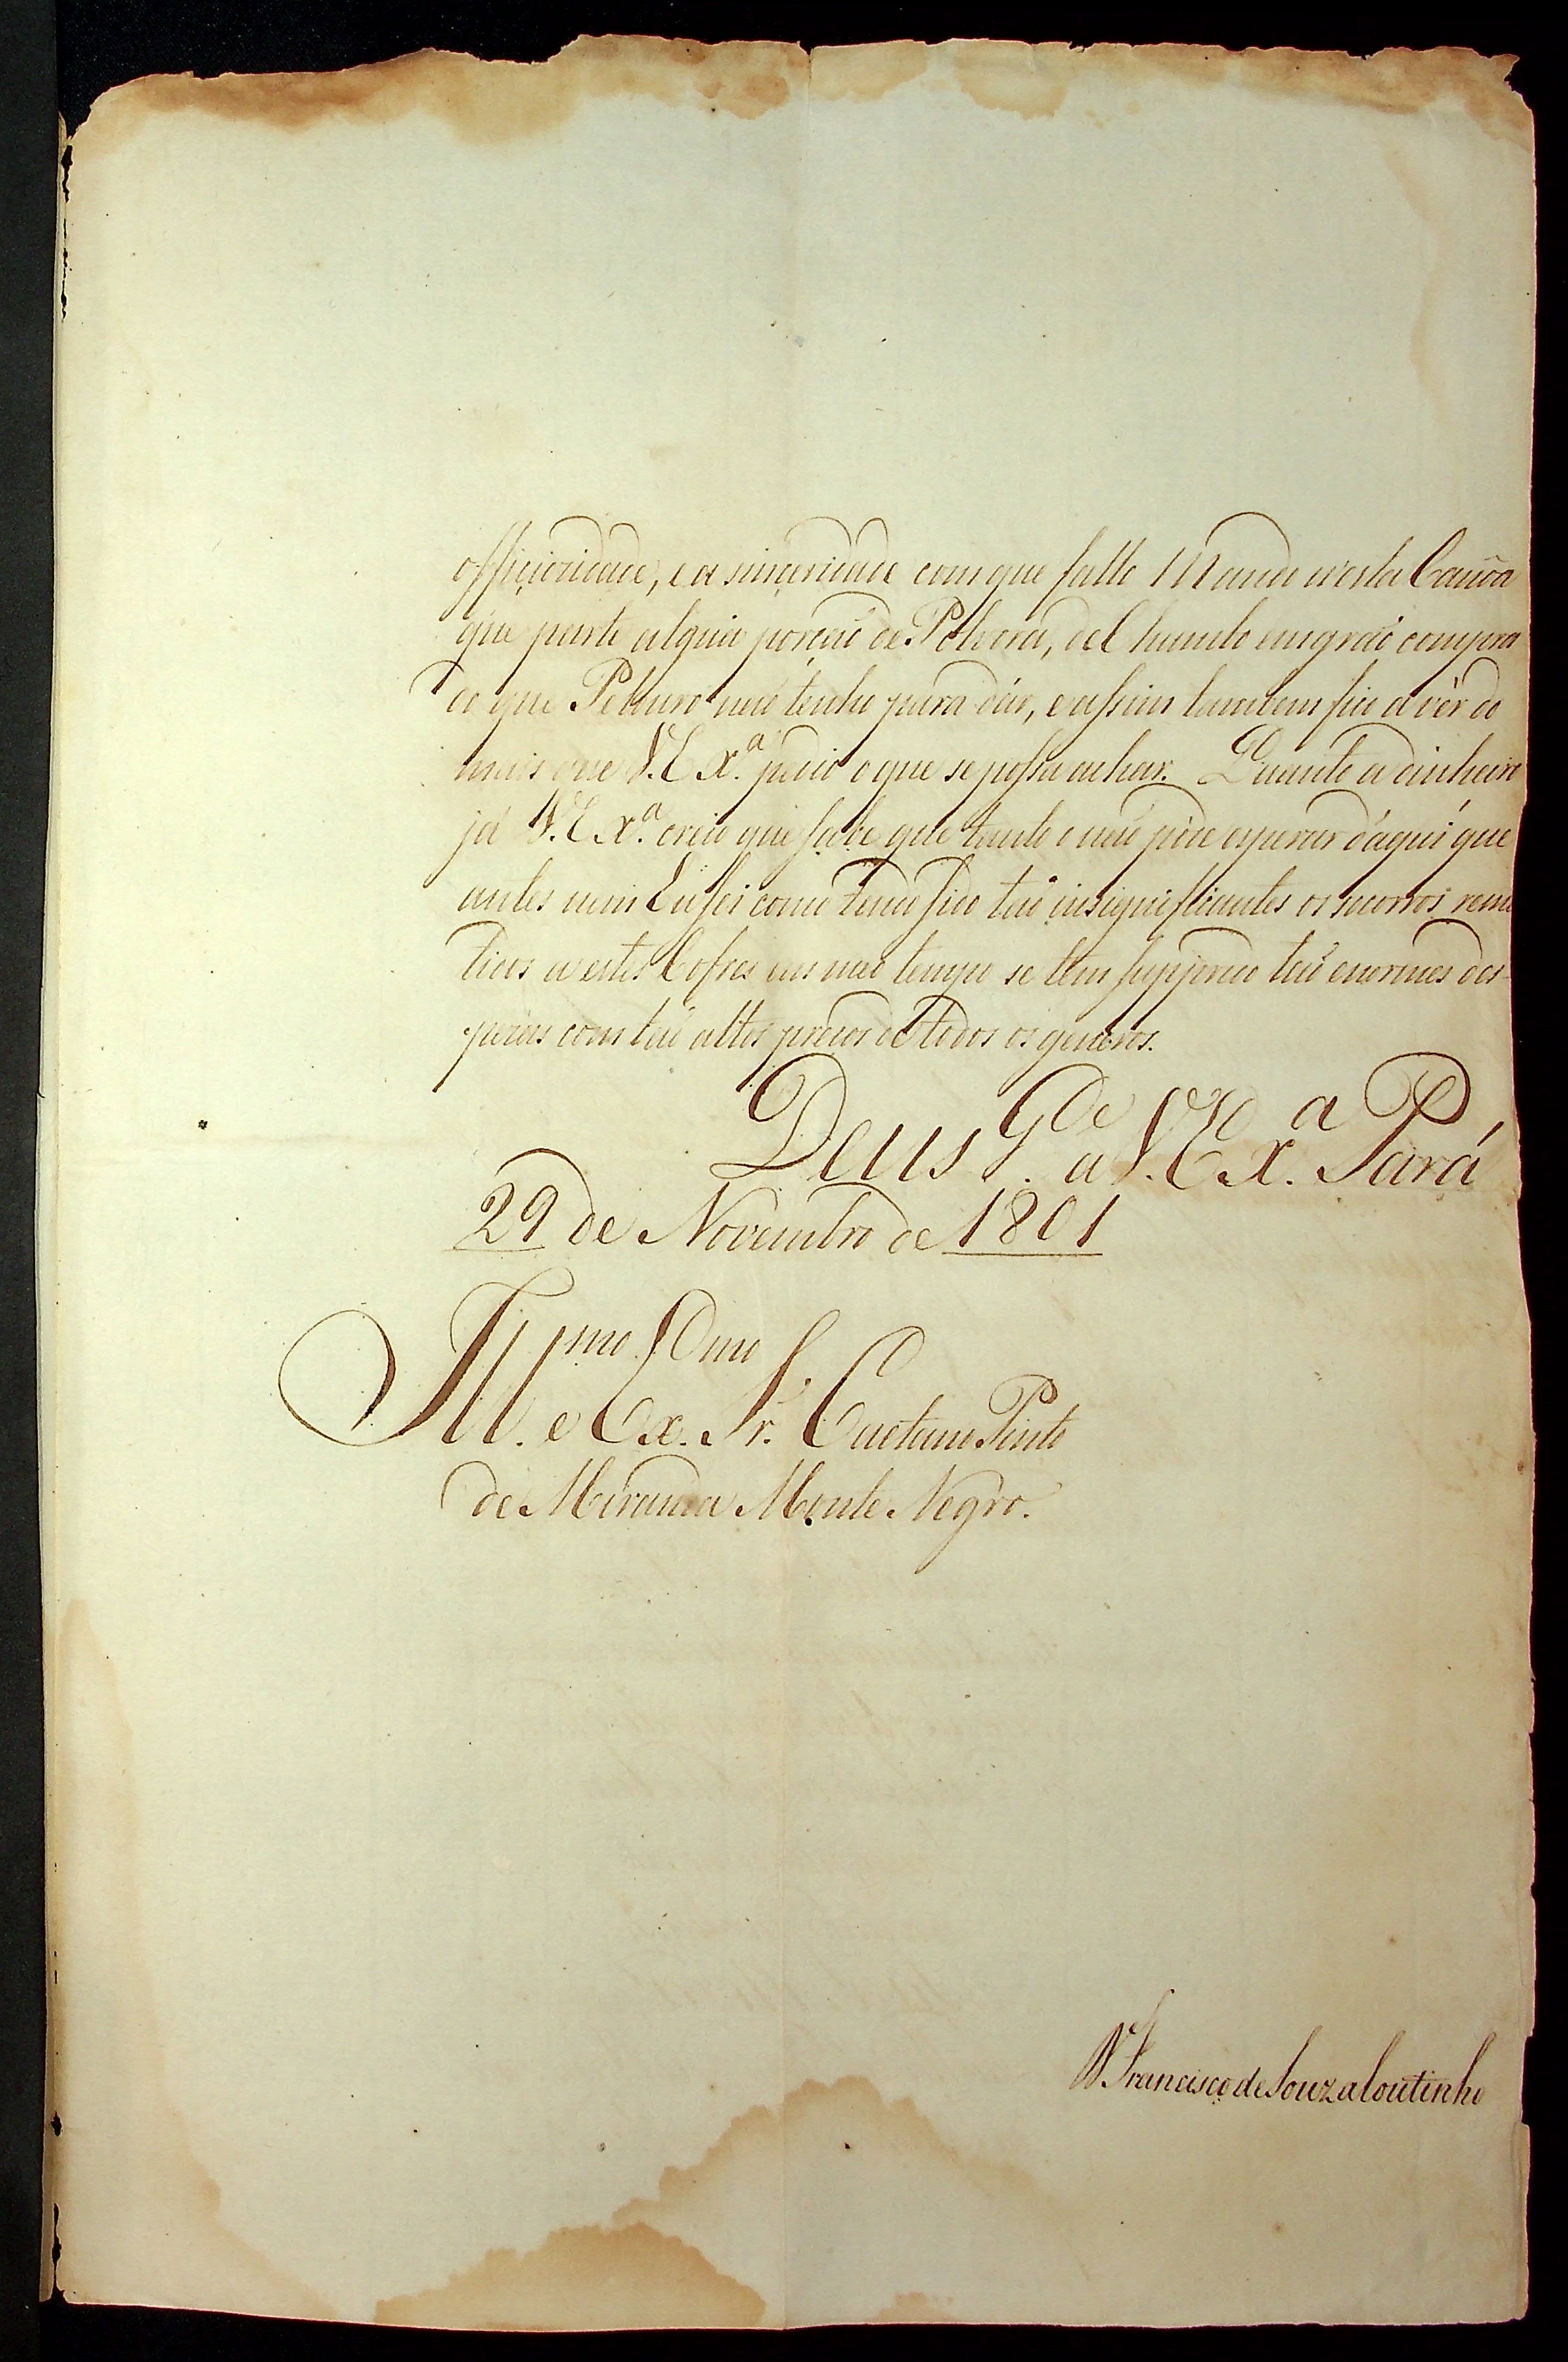 officiozidade, e a sinceridade com que fallo Mando n'esta Canôa
que parte algũa porçaõ de Polvora, de Chumbo em graõ compra
do que Pelouro naõ tenho para dár, e assim tambem fico a vêr do
mais que V. Ex.ª pedio o que se possa achar. Quanto a dinheiro
já V. Ex.ª creio que sabe que tanto o naõ póde esperar d'aqui que
antes nem Eu sei como tendo sido taõ insignificantes os socorros reme
tidos a estes Cofres em meo tempo se tem suppprido taõ enormes des-
pezas com taõ altos preços de todos os generos.
Deus G.de a V. Ex.ª Pará
29 de Novembro de 1801
Ill.mo e Ex.mo Sr. Caetano Pinto
de Miranda Monte Negro.
D. Francisco de Souza Coutinho